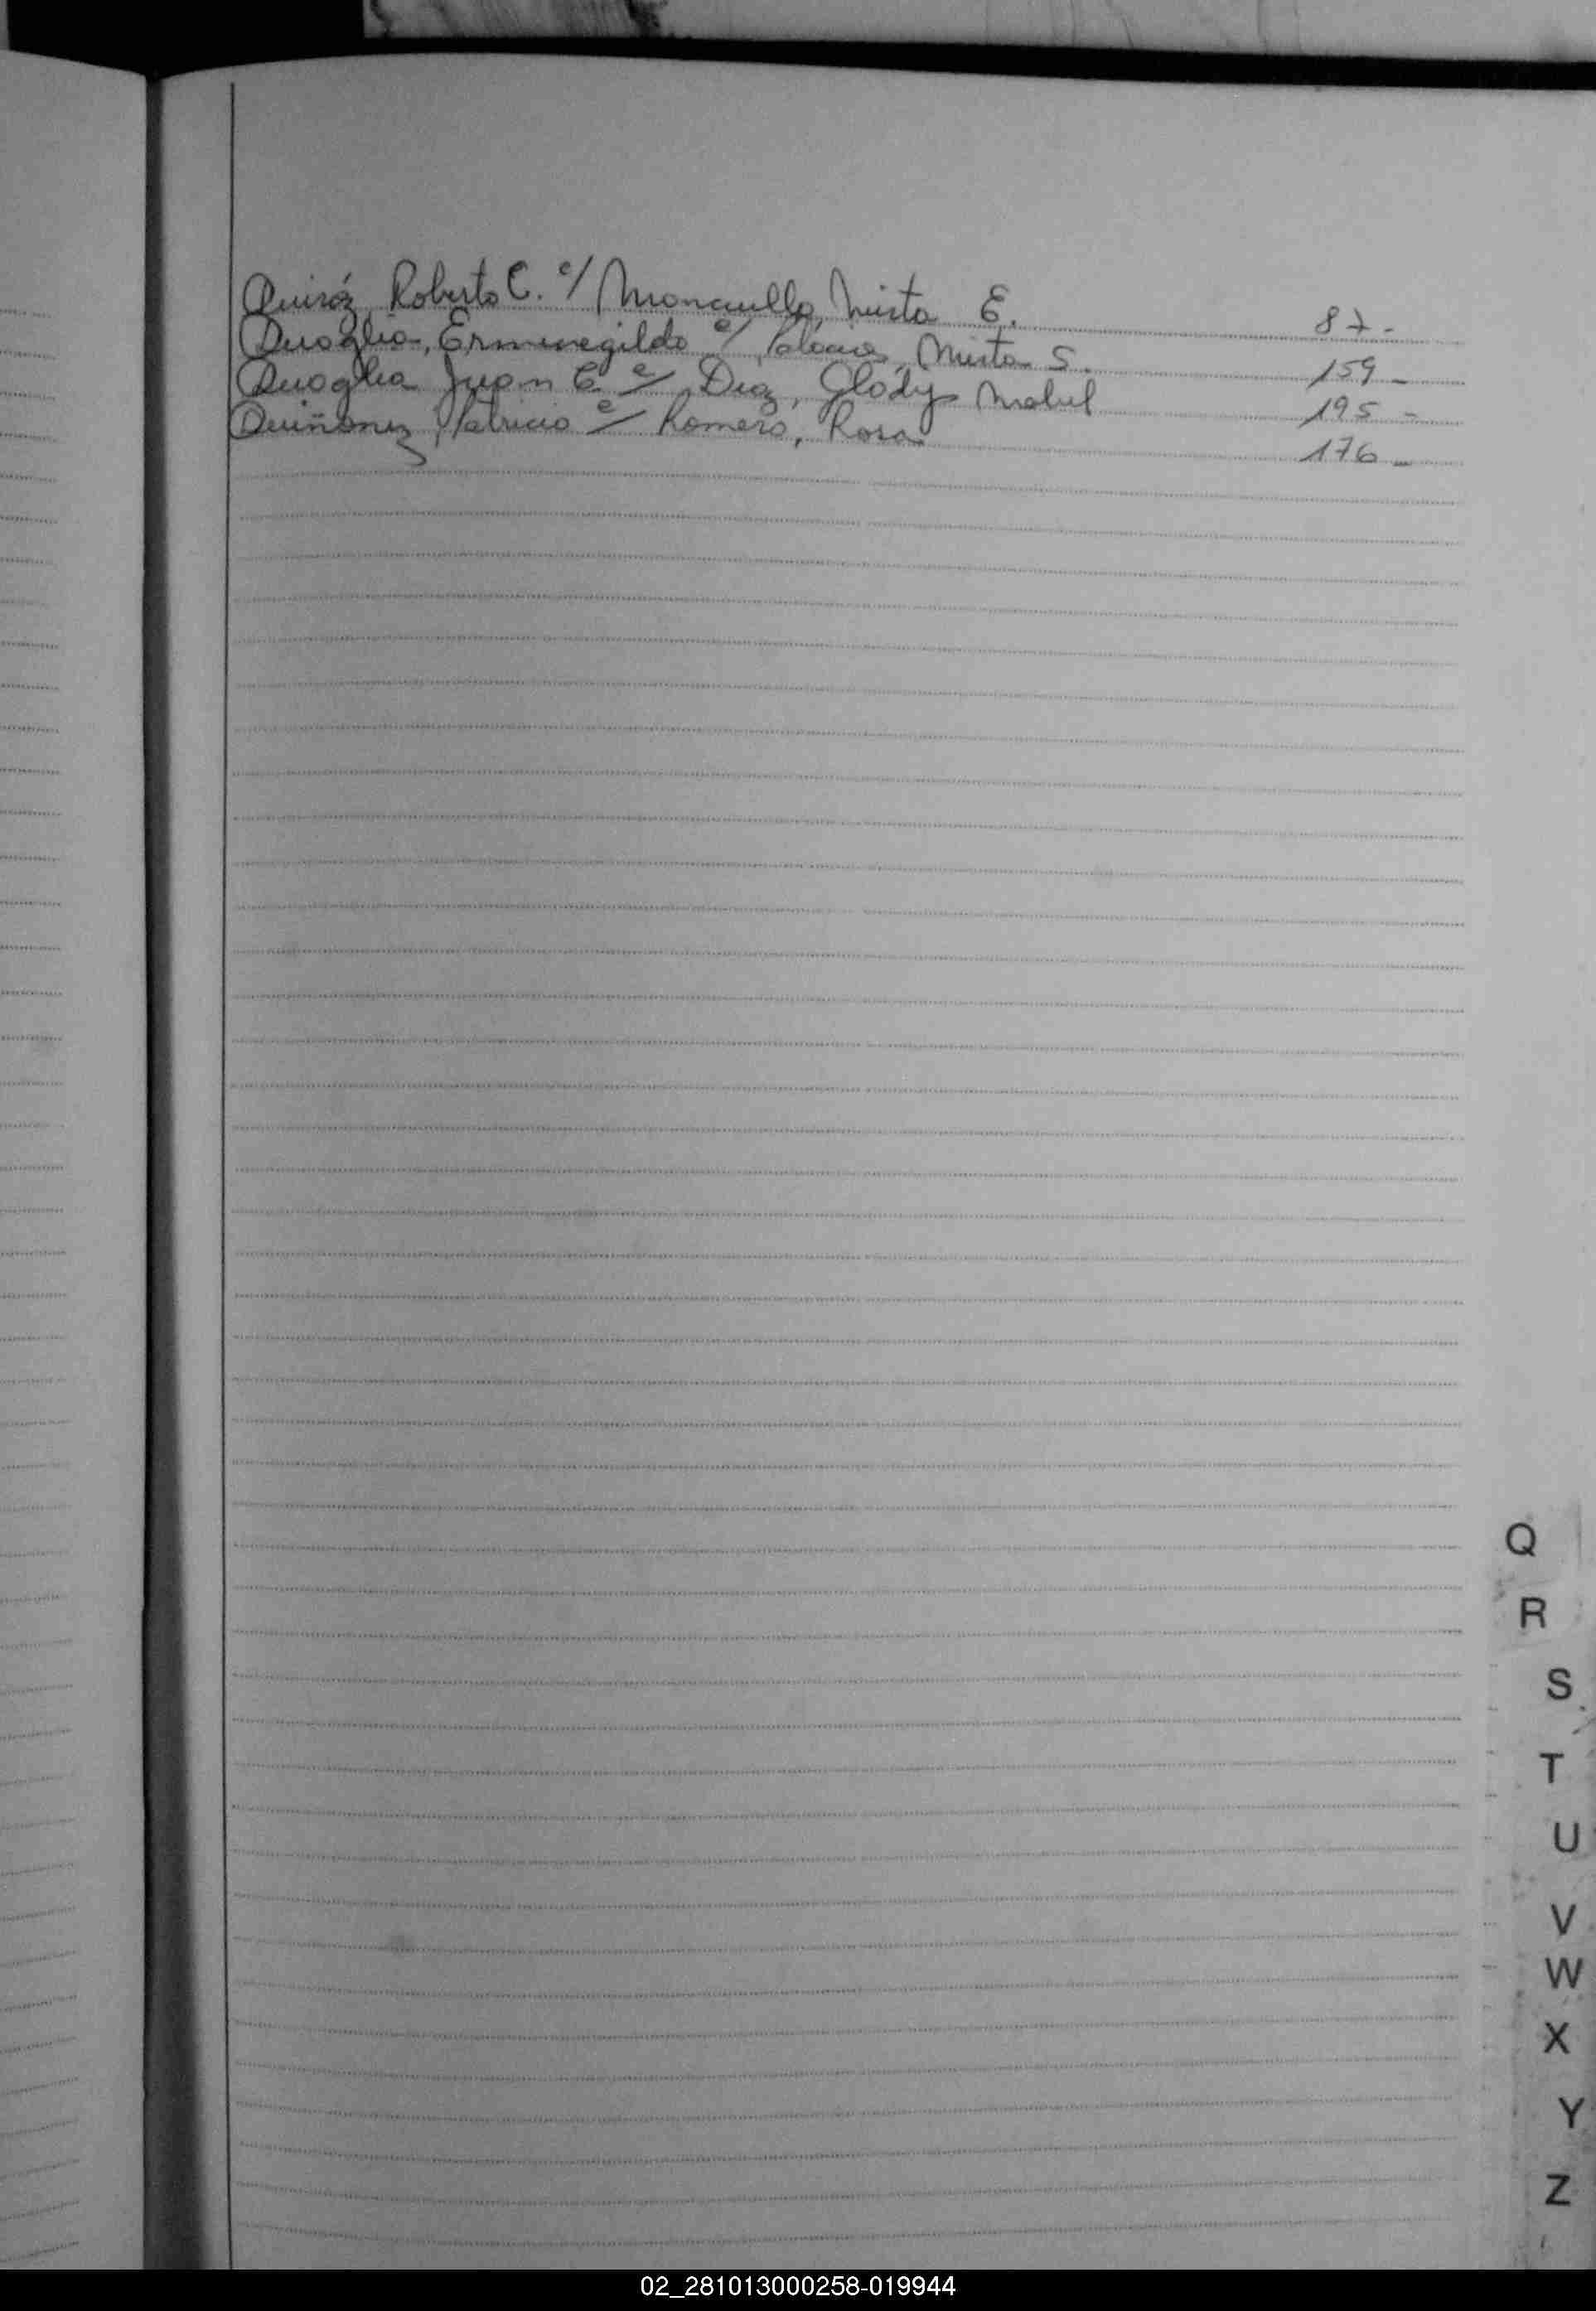 Quiróz, Roberto C. c/ Mirta E. 87-
Quaglia, Ermenegildo c/ Mirta S. 159-
Quaglia Juan C. c/ Diaz, Glady Mabel 195-
Quiñonez, Patricio c/ Romero, Rosa 176-
Q
R
S
T
U
V
W
X
Y
Z
02_281013000258-019944